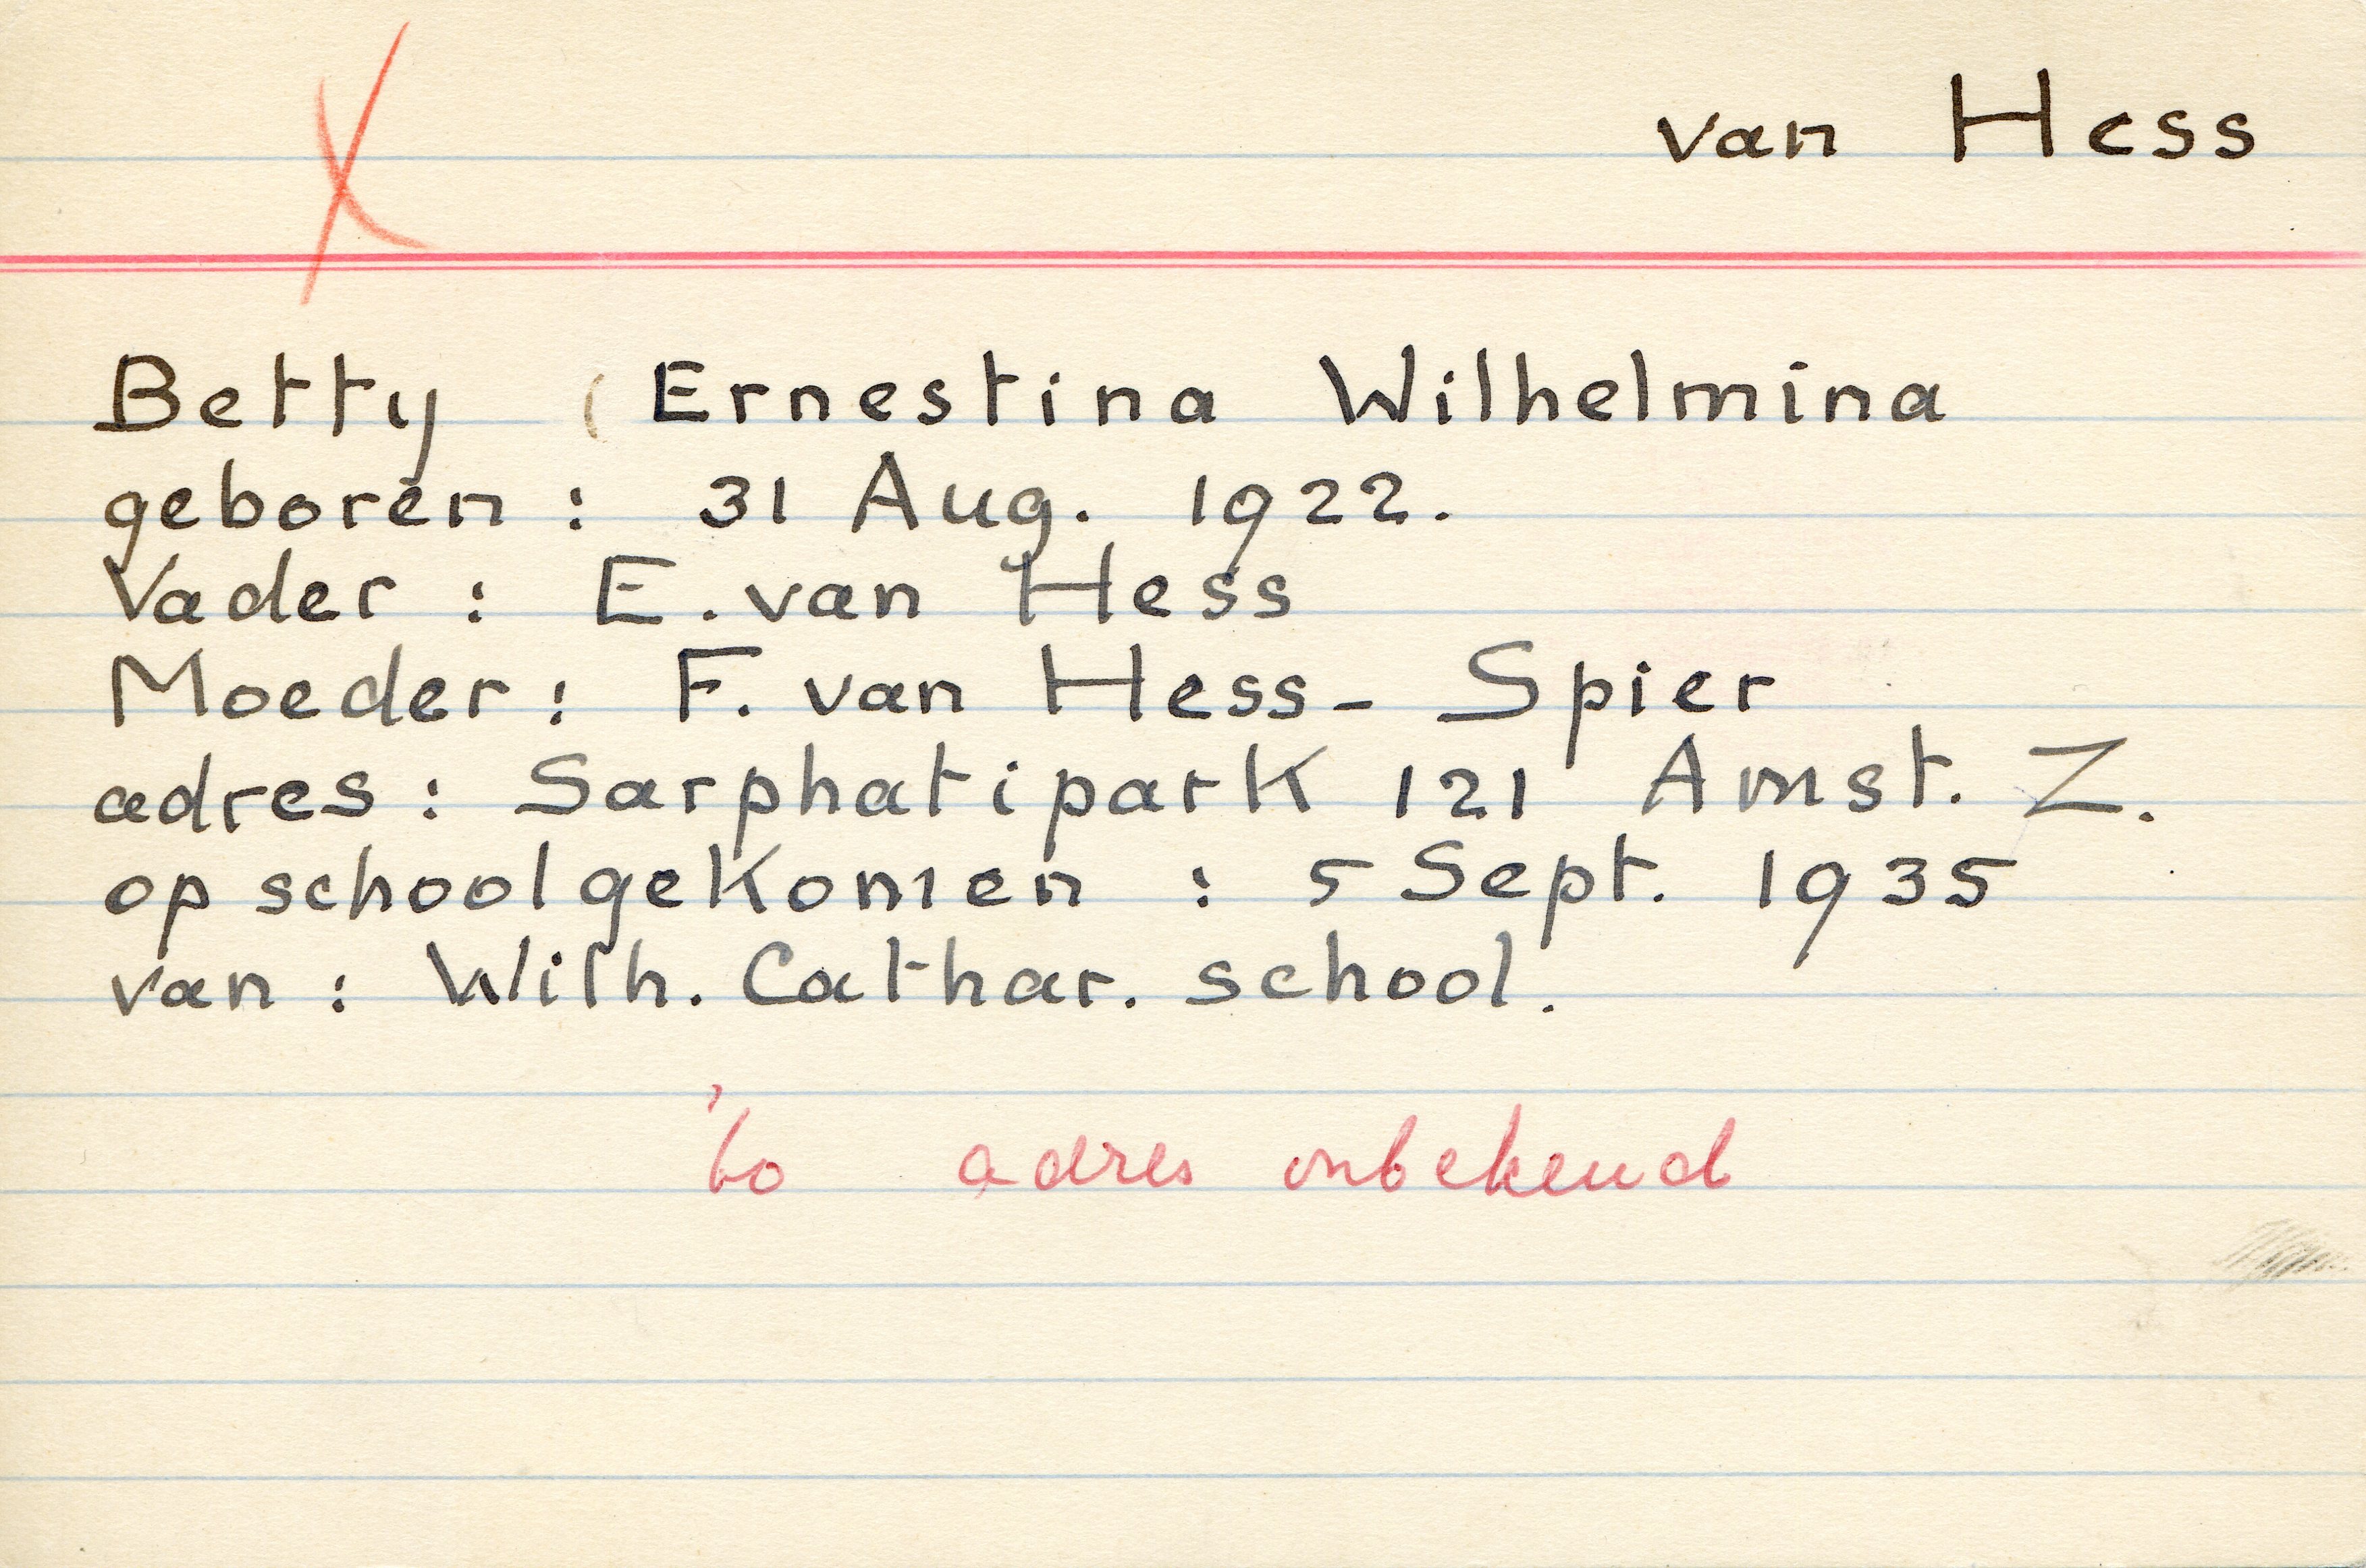 van Hess
Betty (Ernestina Wilhelmina
geboren : 31 Aug. 1922.
Vader : E. van Hess
Moeder : F. van Hess - Spier
adres : Sarphatipark 121 Amst. Z.
op school gekomen : 5 Sept. 1935
van : Wilh. Cathar. school.
adres onbekend